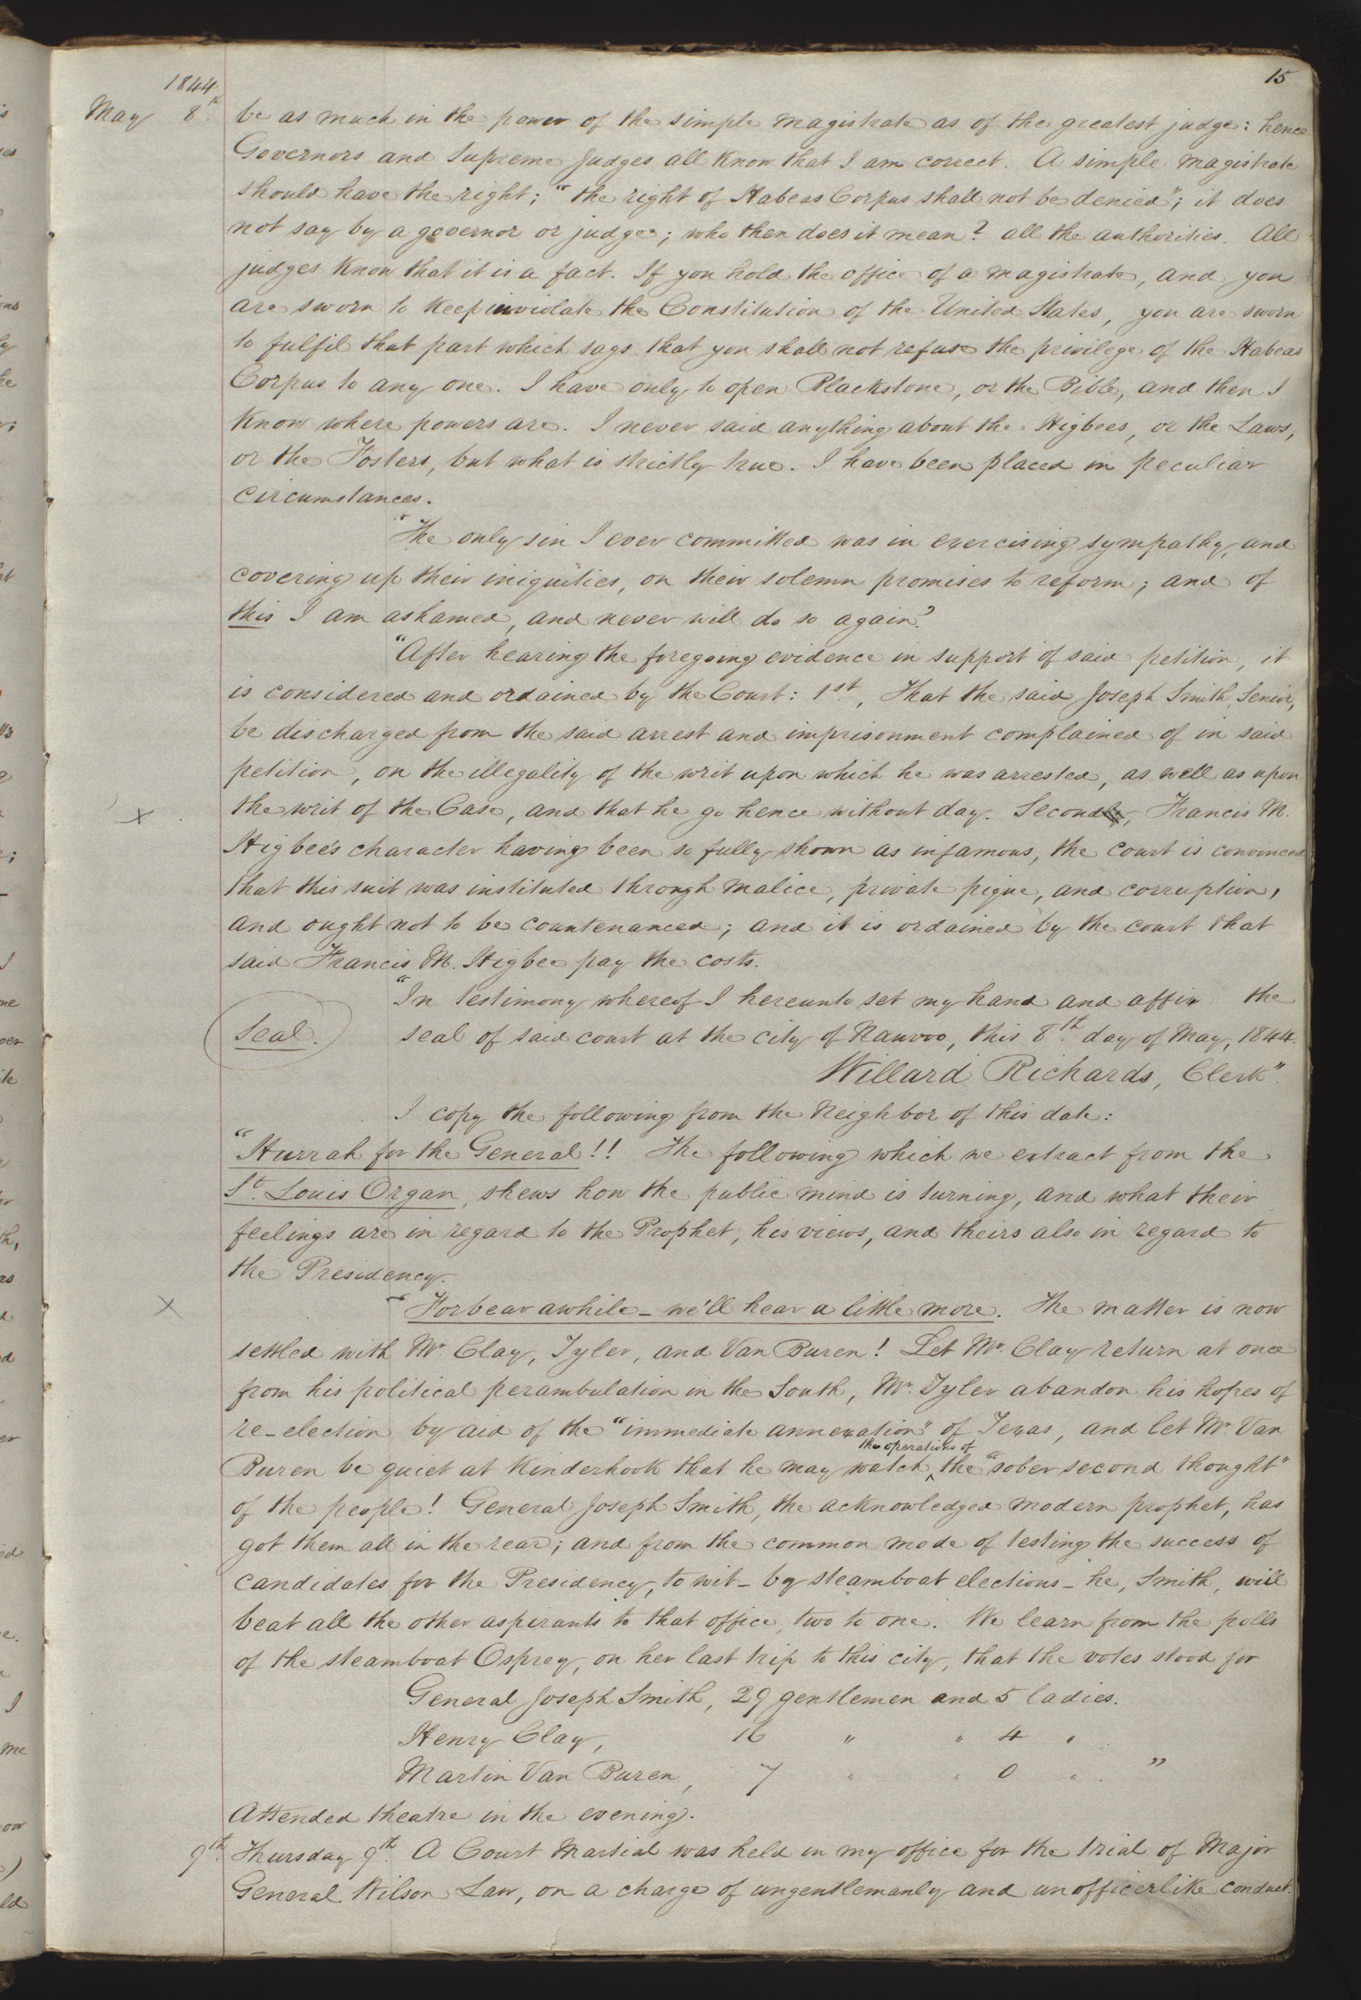 15
1844
May 8th. be as much in the power of the simple magistrate as of the greatest judge: hence
Governors and Supreme Judges all know that I am correct. A simple magistrate
should have the right; "the right of Habeas Corpus shall not be denied"; it does
not say by a governor or judge; who then does it mean? all the authorities. All
judges know that it is a fact. If you hold the office of a magistrate, and you
are sworn to keep inviolate the Constitution of the United States, you are sworn
to fulfil that part which says that you shall not refuse the privilege of the Habeas
Corpus to any one. I have only to open Blackstone, or the Bible, and then I
know where powers are. I never said anything about the Higbees, or the Laws,
or the Fosters, but what is strictly true. I have been placed in peculiar
circumstances.
"The only sin I ever committed was in exercising sympathy, and
covering up their iniquities, on their solemn promises to reform; and of
this I am ashamed, and never will do so again."
"After hearing the foregoing evidence in support of said petition, it
is considered and ordained by the Court: 1st, That the said Joseph Smith, Senior,
be discharged from the said arrest and imprisonment complained of in said
petition, on the illegality of the writ upon which he was arrested, as well as upon
the writ of the Case, and that he go hence without day. Second, Francis M.
Higbee's character having been so fully shown as infamous, the court is convinced
that this suit was instituted through malice, private pique, and corruption,
and ought not to be countenanced; and it is ordained by the court that
said Francis M. Higbee pay the costs.
"In testimony whereof I hereunto set my hand and affix the
Seal. seal of said court at the city of Nauvoo, this 8th day of May, 1844.
Willard Richards, Clerk".
I copy the following from the Neighbor of this date:
"Hurrah for the General!! The following which we extract from the
St. Louis Organ, shews how the public mind is turning, and what their
feelings are in regard to the Prophet, his views, and theirs also in regard to
the Presidency.
"Forbear awhile – we'll hear a little more. The matter is now
settled with Mr. Clay, Tyler, and Van Buren! Let Mr. Clay return at once
from his political perambulation in the South, Mr. Tyler abandon his hopes of
re-election by aid of the "immediate annexation" of Texas, and let Mr. Van
Buren be quiet at Kinderhook that he may watch the operations of the "sober second thought"
of the people! General Joseph Smith, the acknowledged modern prophet, has
got them all in the rear; and from the common mode of testing the success of
candidates for the Presidency, to wit – by steamboat elections – he, Smith, will
beat all the other aspirants to that office, two to one. We learn from the polls
of the steamboat Osprey, on her last trip to this city, that the votes stood for
General Joseph Smith, 29 gentlemen and 5 ladies.
Henry Clay, 16 " " 4 "
Martin Van Buren, 7 " " 0 " "
Attended theatre in the evening.
9th. Thursday 9th. A Court Martial was held in my office for the trial of Major
General Wilson Law, on a charge of ungentlemanly and unofficerlike conduct.